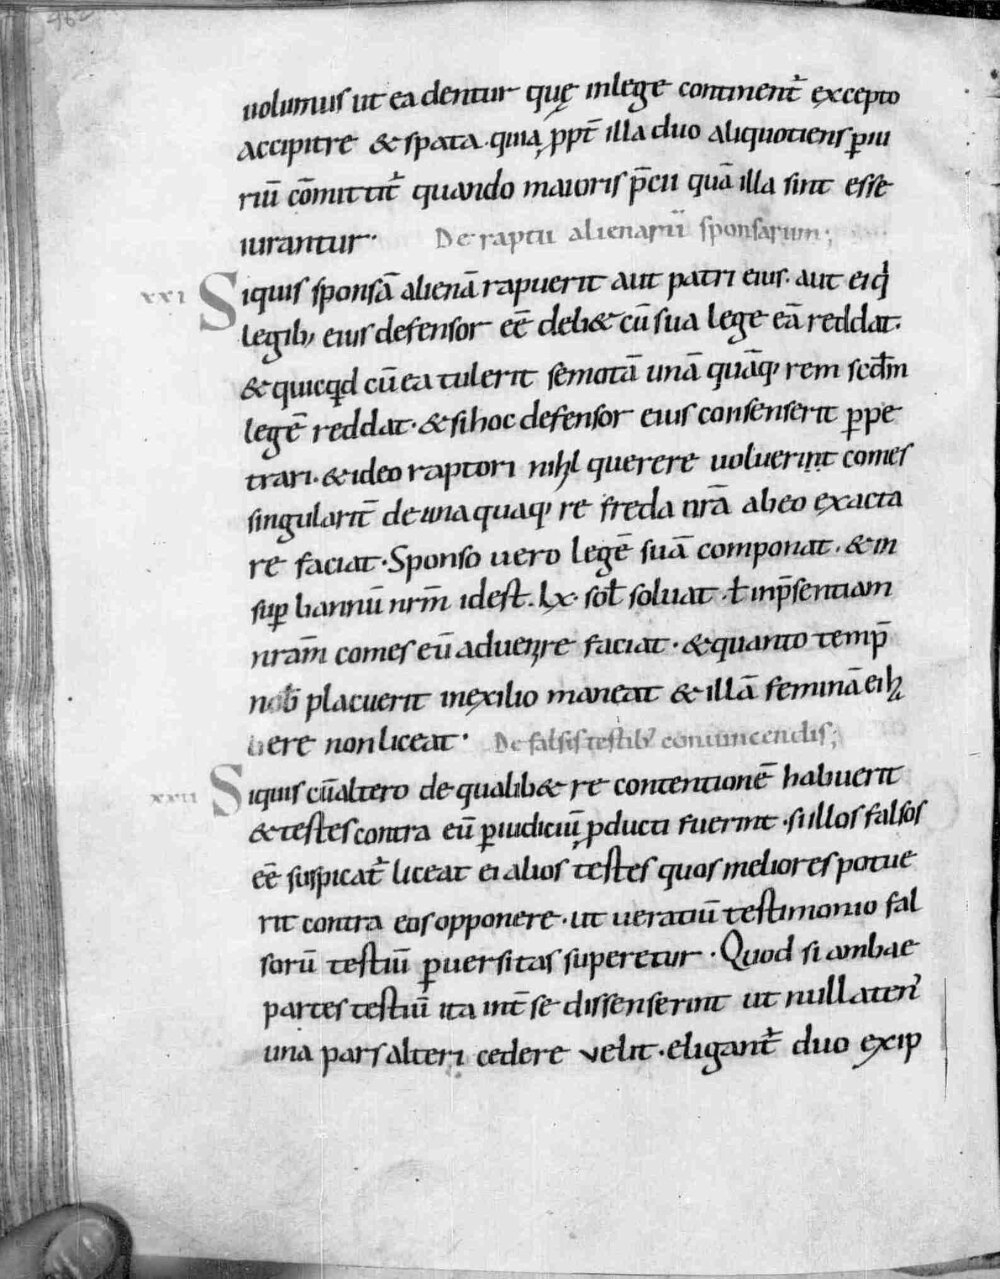 uolumus ut ea dentur quę in lege continent̄ excepto
accipitre & spata. quia ꝓpt̄ illa duo aliquotiens ꝑiu
riū cōmittit̄ quando maioris p̄cii quā illa sint esse
iurantur. De raptu alienarū sponsarum;
xxi Siquis sponsā alienā rapuerit aut patri eius. aut ei q̄
legib; eius defensor eē deb& cū sua lege eā reddat.
& quicq̄d cū ea tulerit semotā unā quāq; rem scd̄m
legē reddat. & si hoc defensor eius consenserit ꝑpe
trari. & ideo raptori nihl querere uoluerint comes
singularit̄ de una quaq; re freda nr̄a ab eo exacta
re faciat. Sponso uero legē suā componat. & in
suꝑ bannū nrm̄ id est. lx. sol̄ soluat. ł in p̄sentiam
nrām comes eū aduenire faciat. & quanto temp̄
nob̄ placuerit in exilio maneat & illā feminā ei h
bere non liceat. De falsis testib; conuincendis;
xxii Siquis cū altero de qualib& re contentionē habuerit
& testes contra eū ꝑ iudiciū ꝓducti fuerint. si illos falsos
eē suspicat̄ liceat ei alios testes quos meliores potue
rit contra eos opponere. ut ueratiū testimonio fal
sorū testiū ꝑuersitas superetur. Quod si ambae
partes testiū ita int̄ se dissenserint ut nullaten᾽
una pars alteri cedere velit. eligant̄ duo ex ip